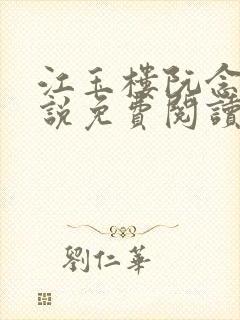 江玉樓阮念
說免費閱讀
劉仁華